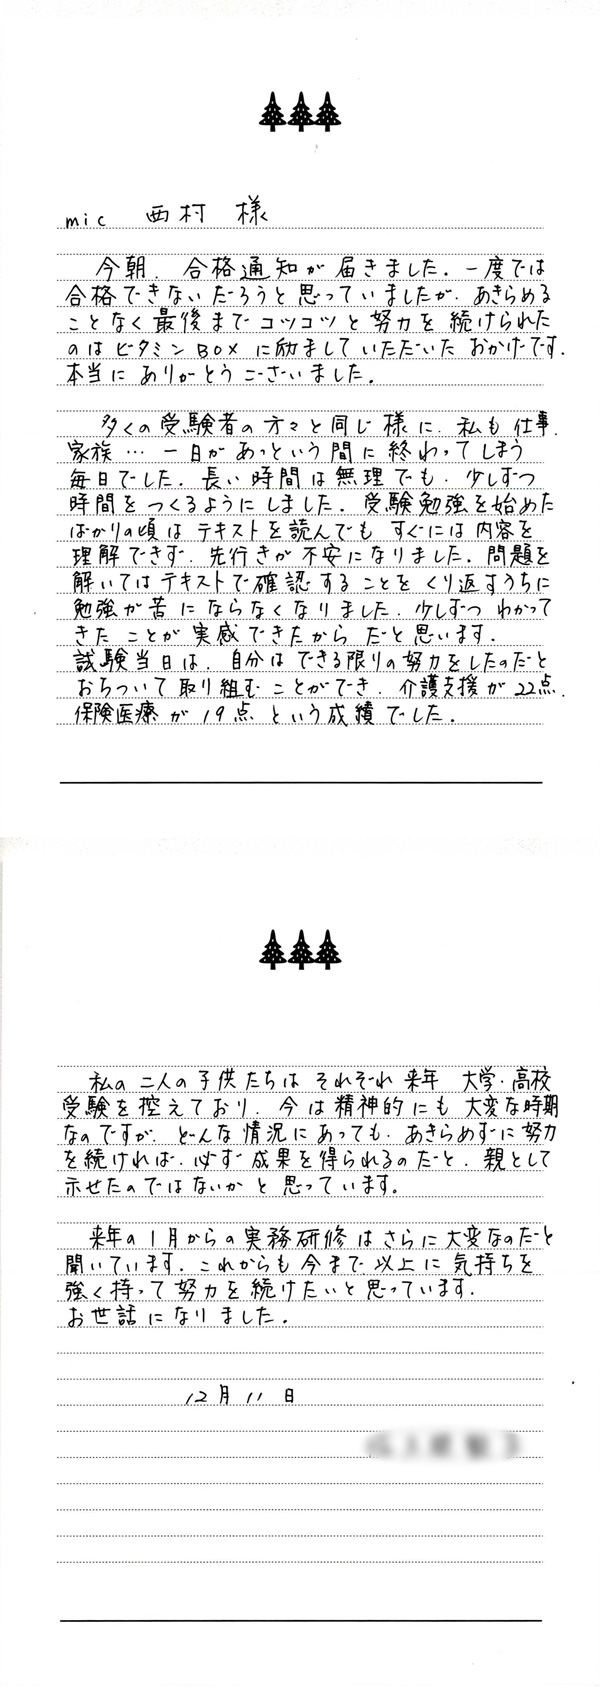 mic 西村 様
今朝、合格通知が届きました。一度では
合格できないだろうと思っていましたが、あきらめる
ことなく最後までコツコツと努力を続けられた
のはビタミンBOXに励ましていただいたおかげです。
本当にありがとうございました。
多くの受験者の方々と同じ様に、私も仕事、
家族…一日があっという間に終わってしまう
毎日でした。長い時間は無理でも、少しずつ
時間をつくるようにしました。受験勉強を始めた
ばかりの頃はテキストを読んでもすぐには内容を
理解できず、先行きが不安になりました。問題を
解いてはテキストで確認することをくり返すうちに
勉強が苦にならなくなりました。少しずつわかって
きたことが実感できたからだと思います。
試験当日は、自分はできる限りの努力をしたのだと
おちついて取り組むことができ、介護支援が22点、
保険医療が19点という成績でした。
私の二人の子供たちはそれぞれ来年 大学・高校
受験を控えており、今は精神的にも大変な時期
なのですが、どんな情況にあっても、あきらめずに努力
を続ければ、必ず成果を得られるのだと、親として
示せたのではないかと思っています。
来年の1月からの実務研修はさらに大変なのだと
聞いています。これからも今まで以上に気持ちを
強く持って努力を続けたいと思っています。
お世話になりました。
12月11日